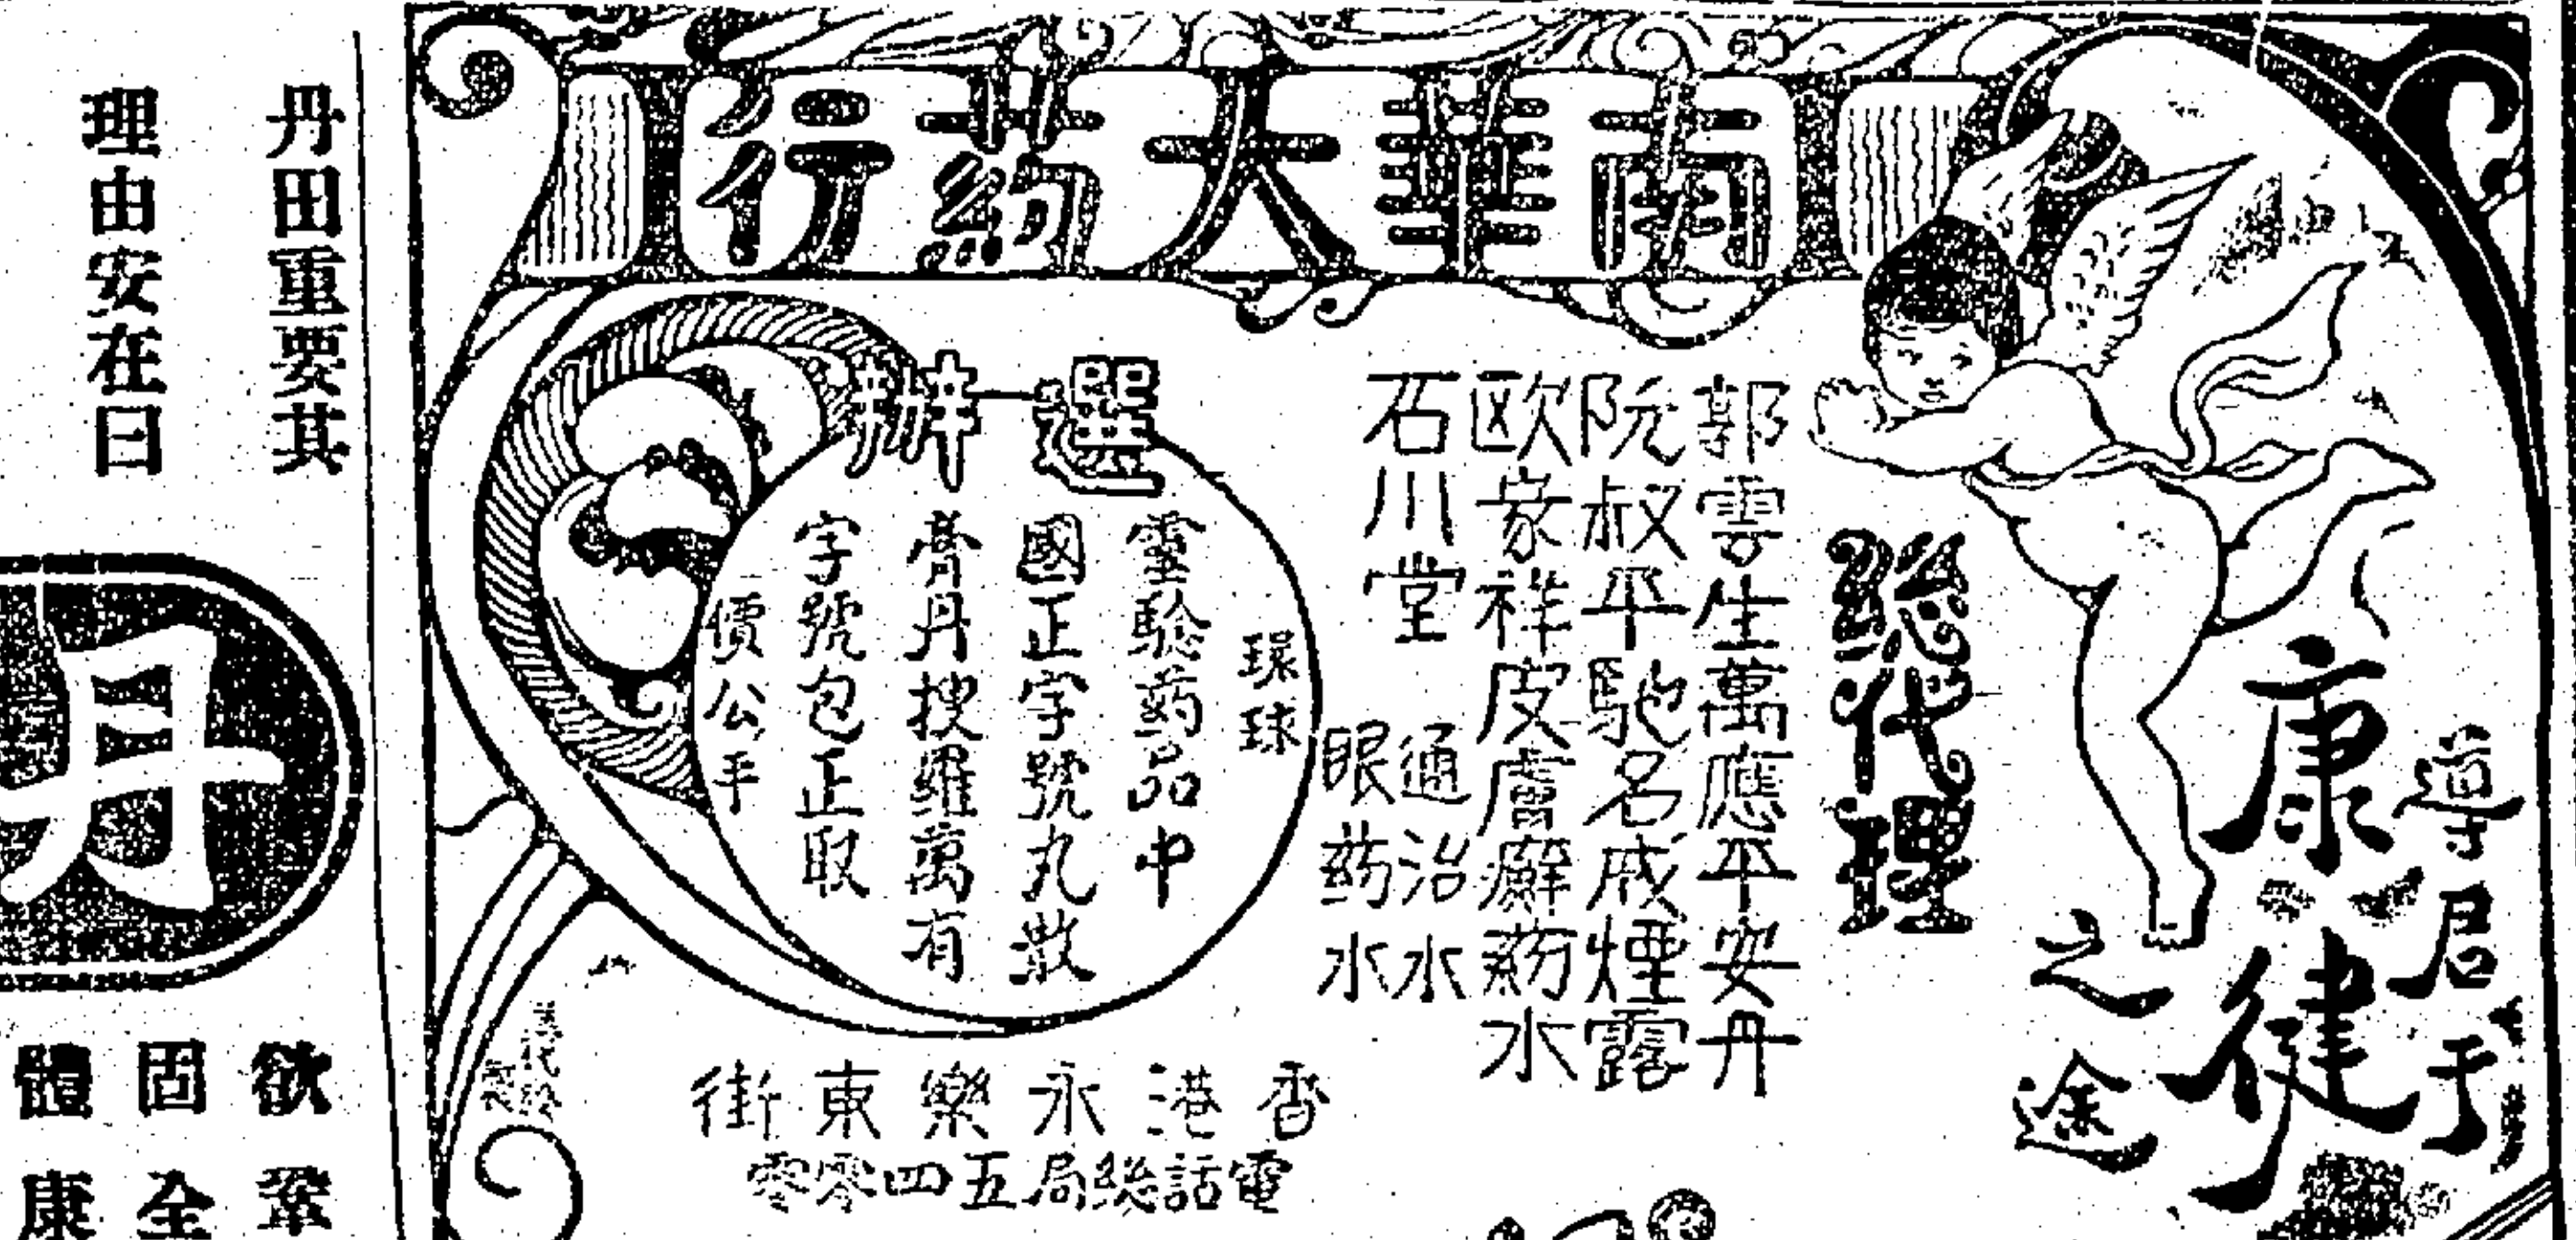 南華大葯行
導君于
康健
之途
総代理
郭雲生萬應平安丹
阮叔平馳名戒煙露
欧家祥皮膚癬葯水
石川堂
通治水
眼葯水
選辦
環球
靈驗葯品中
國正字號丸散
膏丹搜羅萬有
字號包正取
價公平
香港永樂東街
電話総局五四零零
丹田重要其
理由安在曰
丹
欲鞏
固全
體康